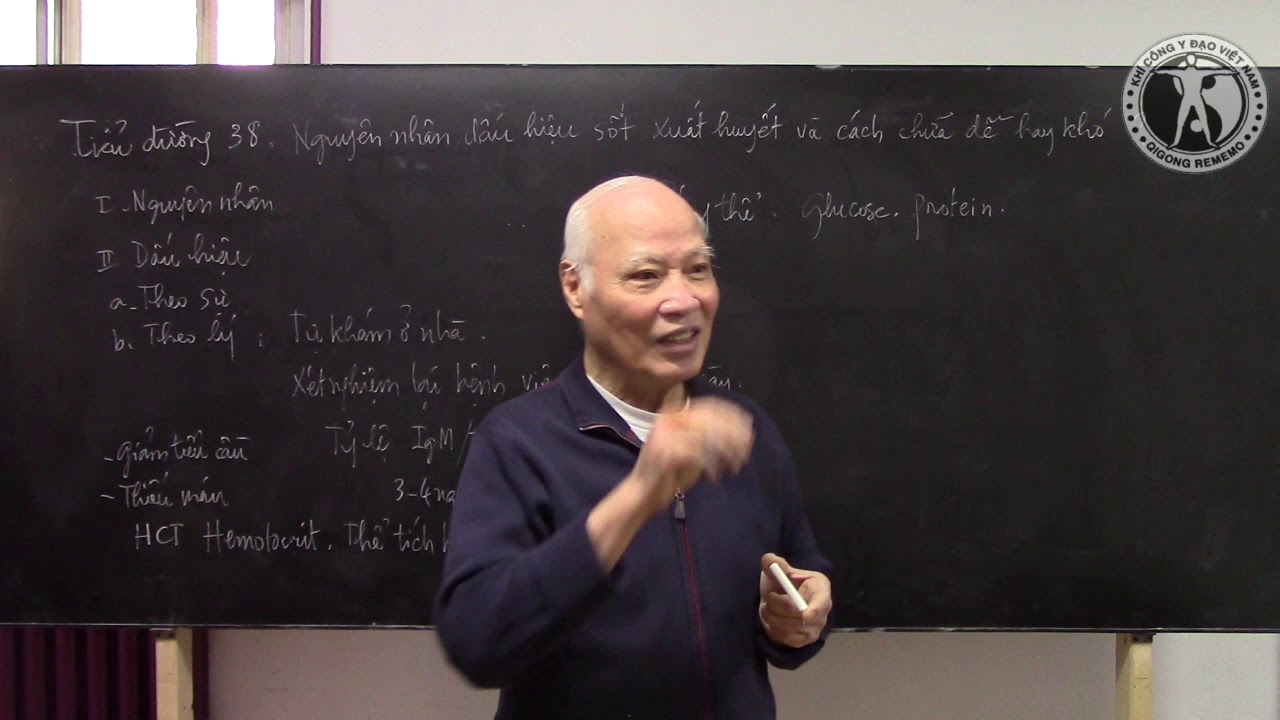 Tiểu đường 38. Nguyên nhân dấu hiệu sốt xuất huyết và cách chữa dễ hay khó
KHÍ CÔNG Y ĐẠO VIỆT NAM
QIGONG REMEMO
I - Nguyên nhân
thể. Glucose. protein.
II Dấu hiệu
a - Theo sử
b. Theo lý : Tự khám ở nhà.
Xét nghiệm tại bệnh
- Giảm tiểu cầu Tỷ lệ IgM
- Thiếu máu 3-4
HCT Hemotocrit. Thể tích